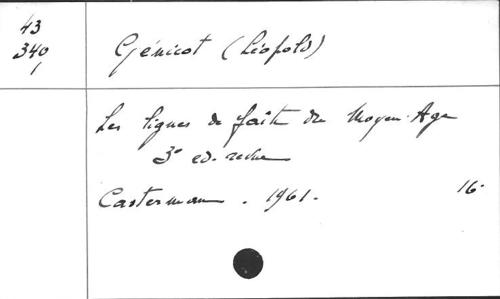 43
340
1
Génicot (Léopold)
Les lignes de faîte du Moyen-Age
3e ed. revue
Casterman. 1961. 16°